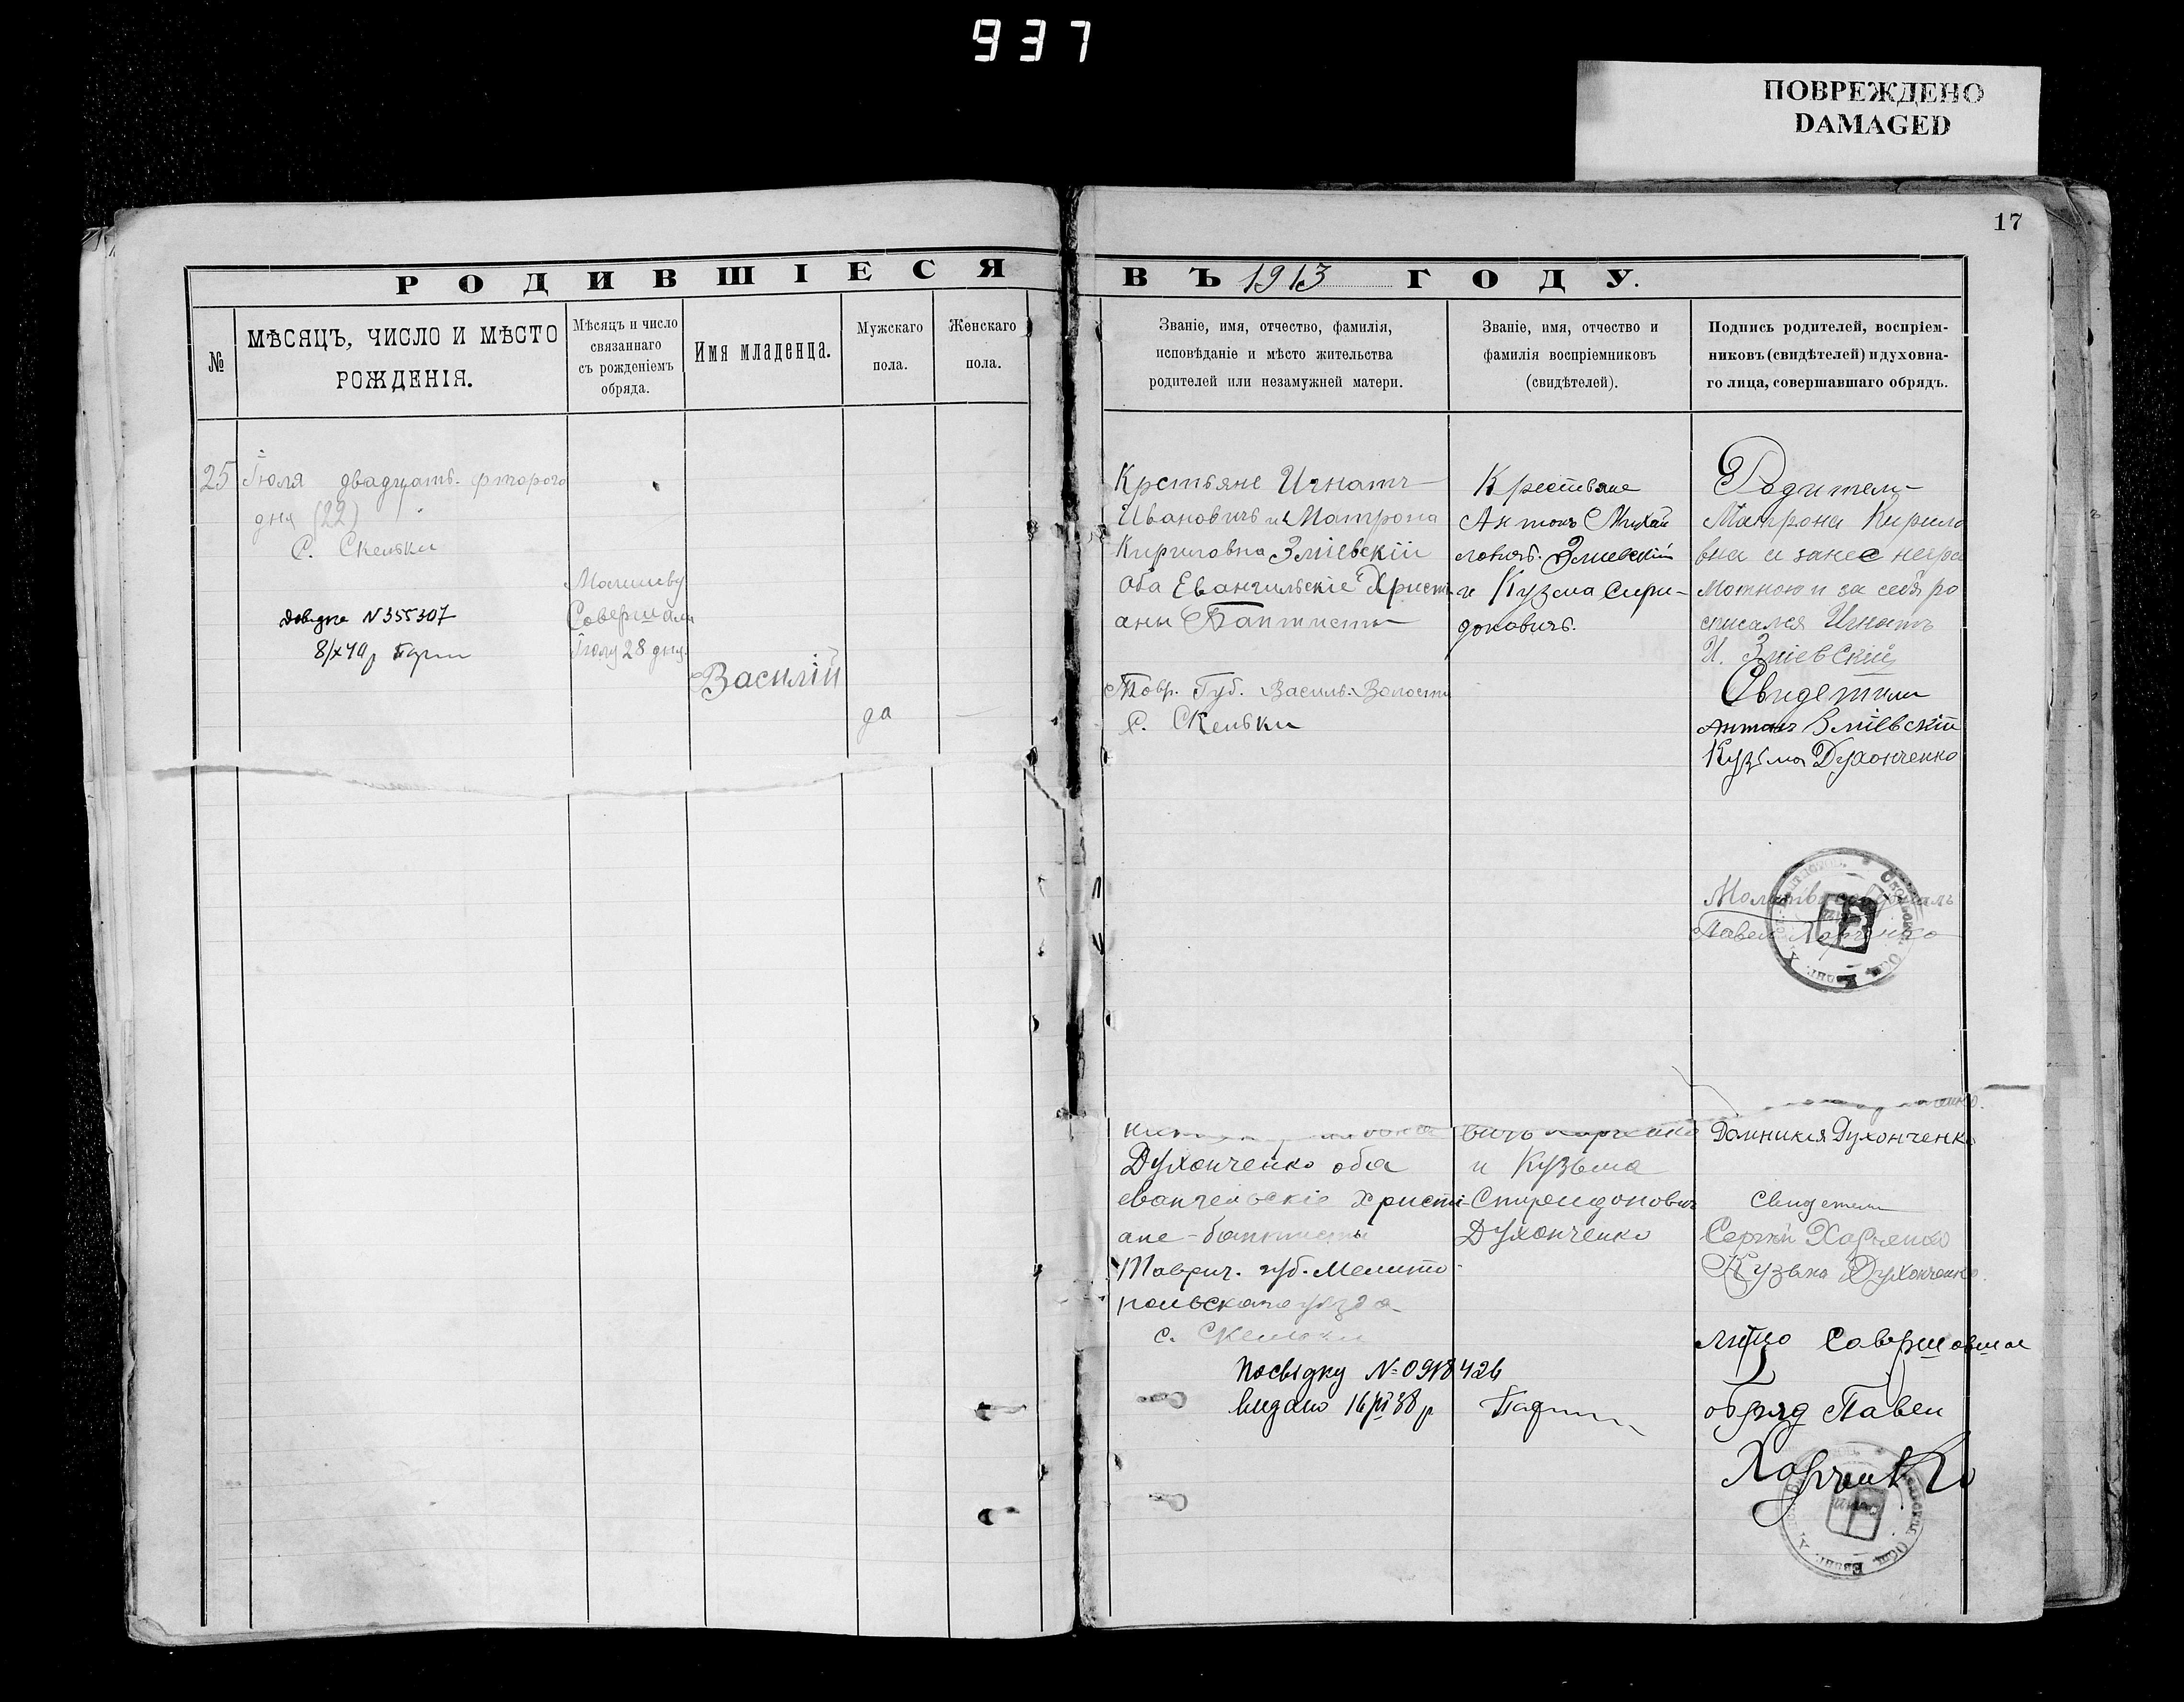 937
ПОВРЕЖДЕНО
DAMAGED
17
РОДИВШІЕСЯ ВЪ 1913 ГОДУ.
№
МѢСЯЦЪ, ЧИСЛО И МѢСТО
РОЖДЕНІЯ.
Мѣсяцъ и число
связаннаго
съ рожденіемъ
обряда.
Имя младенца.
Мужскаго
пола.
Женскаго
пола.
Званіе, имя, отчество, фамилія,
исповѣданіе и мѣсто жительства
родителей или незамужней матери.
Званіе, имя, отчество и
фамилія воспріемниковъ
(свидѣтелей).
Подпись родителей, воспріем-
никовъ (свидѣтелей) и духовна-
го лица, совершавшаго обрядъ.
25
Іюля двадцать фторого
дня (22)
С. Скельки
Довідка N 355307
8/X 49р
Молитву
Совершали
Іюлу 28 дня
Василій
да
—
Крстьяне Игнатъ
Ивановичъ и Матрона
Кириловна Зміевскіи
Оба Евангильскіе Христи
аны Баптисты
Тавр. Губ. Василь. Волости
С. Скельки
Крестьяне
Антонъ Михай
ловичъ. Змиевский
и Кузма Спири-
доновичъ.
Родители
Матрона Кирило
вна и за нее негра
мотною и за себя ро
списался Игнатъ
И. Зміевскій
Свидетили
Антонъ Зміевскій
Кузьма Духонченко
Молитву совершалъ
Павел Харченко
енко.
вичъ Харченко
Домникия Духонченко
Духонченко оба
евангельскіе христи-
ане-баптисты
Таврич. губ. Мелито-
польскаго уѣзда
с. Скельки
и Кузьма
Спиридонович
Духонченко
Свидетели
Сергѣй Харченко
Кузьма Духонченко.
Лицо Совершавшае
обряд Павел
Харченко
Посвідку N=0918426
видано 16/VI 38 р